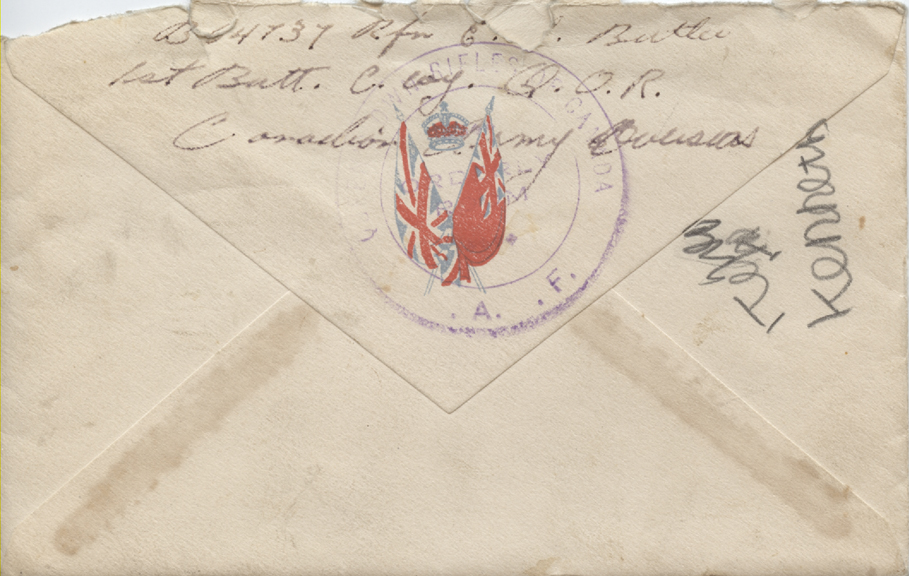 B54737 Rfn E. J. Butler
1st Batt. C. Coy. Q. O. R.
Canadian Army Overseas
RIFLES OF CANADA
. A. . F.
Kenneth